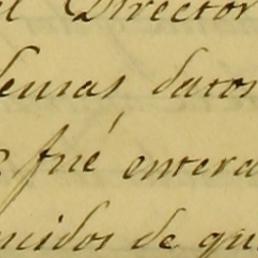 el Director
demas datos
fué entera
cidos de qu